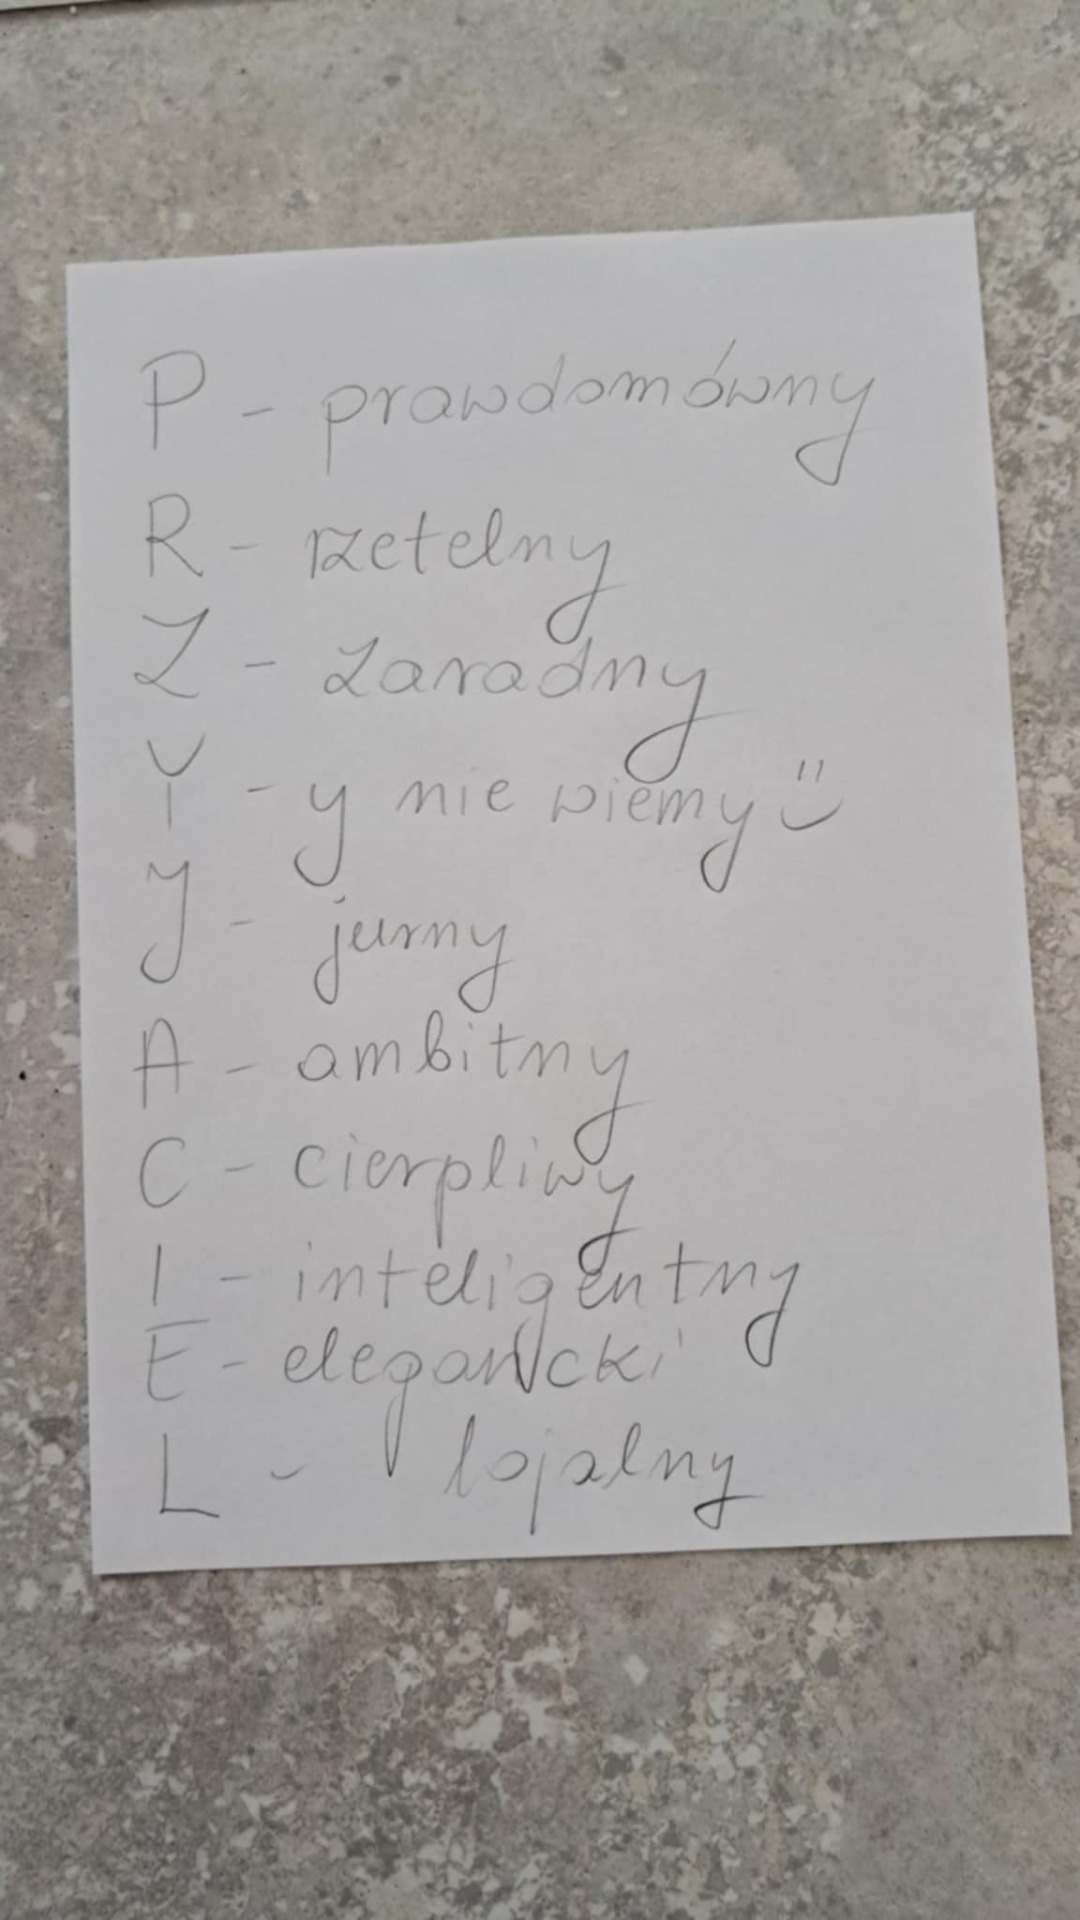 P - prawdomówny
R - rzetelny
Z - zaradny
Y - y nie wiemy
J - jurny
A - ambitny
C - cierpliwy
I - inteligentny
E - elegancki
L - lojalny